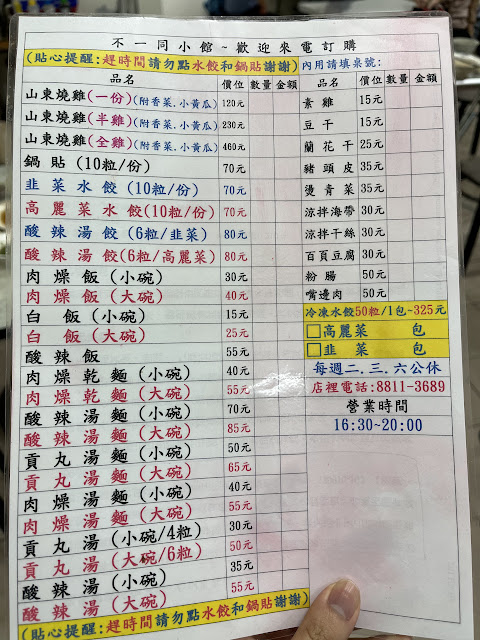 不一同小館~歡迎來電訂購
(貼心提醒:趕時間請勿點水餃和鍋貼謝謝)
品名 價位 數量 金額
山東燒雞(一份)(附香菜.小黃瓜) 120元
山東燒雞(半雞)(附香菜.小黃瓜) 230元
山東燒雞(全雞)(附香菜.小黃瓜) 460元
鍋貼(10粒/份) 70元
韭菜水餃(10粒/份) 70元
高麗菜水餃(10粒/份) 70元
酸辣湯餃(6粒/韭菜) 80元
酸辣湯餃(6粒/高麗菜) 80元
肉燥飯(小碗) 30元
肉燥飯(大碗) 40元
白飯(小碗) 15元
白飯(大碗) 25元
酸辣飯 55元
肉燥乾麵(小碗) 40元
肉燥乾麵(大碗) 55元
酸辣湯麵(小碗) 70元
酸辣湯麵(大碗) 85元
貢丸湯麵(小碗) 50元
貢丸湯麵(大碗) 65元
肉燥湯麵(小碗) 40元
肉燥湯麵(大碗) 55元
貢丸湯(小碗/4粒) 30元
貢丸湯(大碗/6粒) 50元
酸辣湯(小碗) 35元
酸辣湯(大碗) 55元
(貼心提醒:趕時間請勿點水餃和鍋貼謝謝)
內用請填桌號:
品名 價位 數量 金額
素雞 15元
豆干 15元
蘭花干 25元
豬頭皮 35元
燙青菜 35元
涼拌海帶 30元
涼拌干絲 30元
百頁豆腐 30元
粉腸 50元
嘴邊肉 50元
冷凍水餃50粒/1包~325元
高麗菜 包
韭菜 包
每週二.三.六公休
店裡電話:8811-3689
營業時間
16:30~20:00